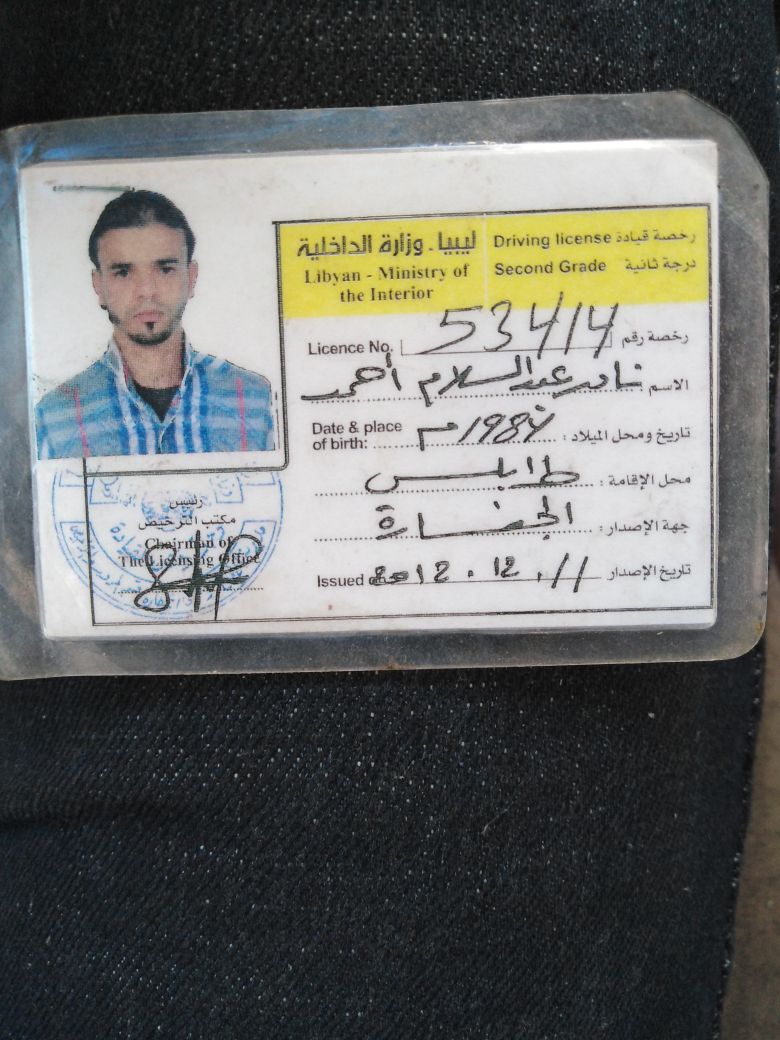 ليبيا - وزارة الداخلية
Libyan - Ministry of
the Interior
Driving license رخصة قيادة
Second Grade درجة ثانية
Licence No. 53414 رخصة رقم
الاسم نادر عبدالسلام أحمد
Date & place
of birth: تاريخ ومحل الميلاد : 1987 م
محل الإقامة : طرابلس
جهة الإصدار : الجفارة
Issued 2012.12.11 تاريخ الإصدار
رئيس
مكتب الترخيص
Chairman of
The Licensing Office